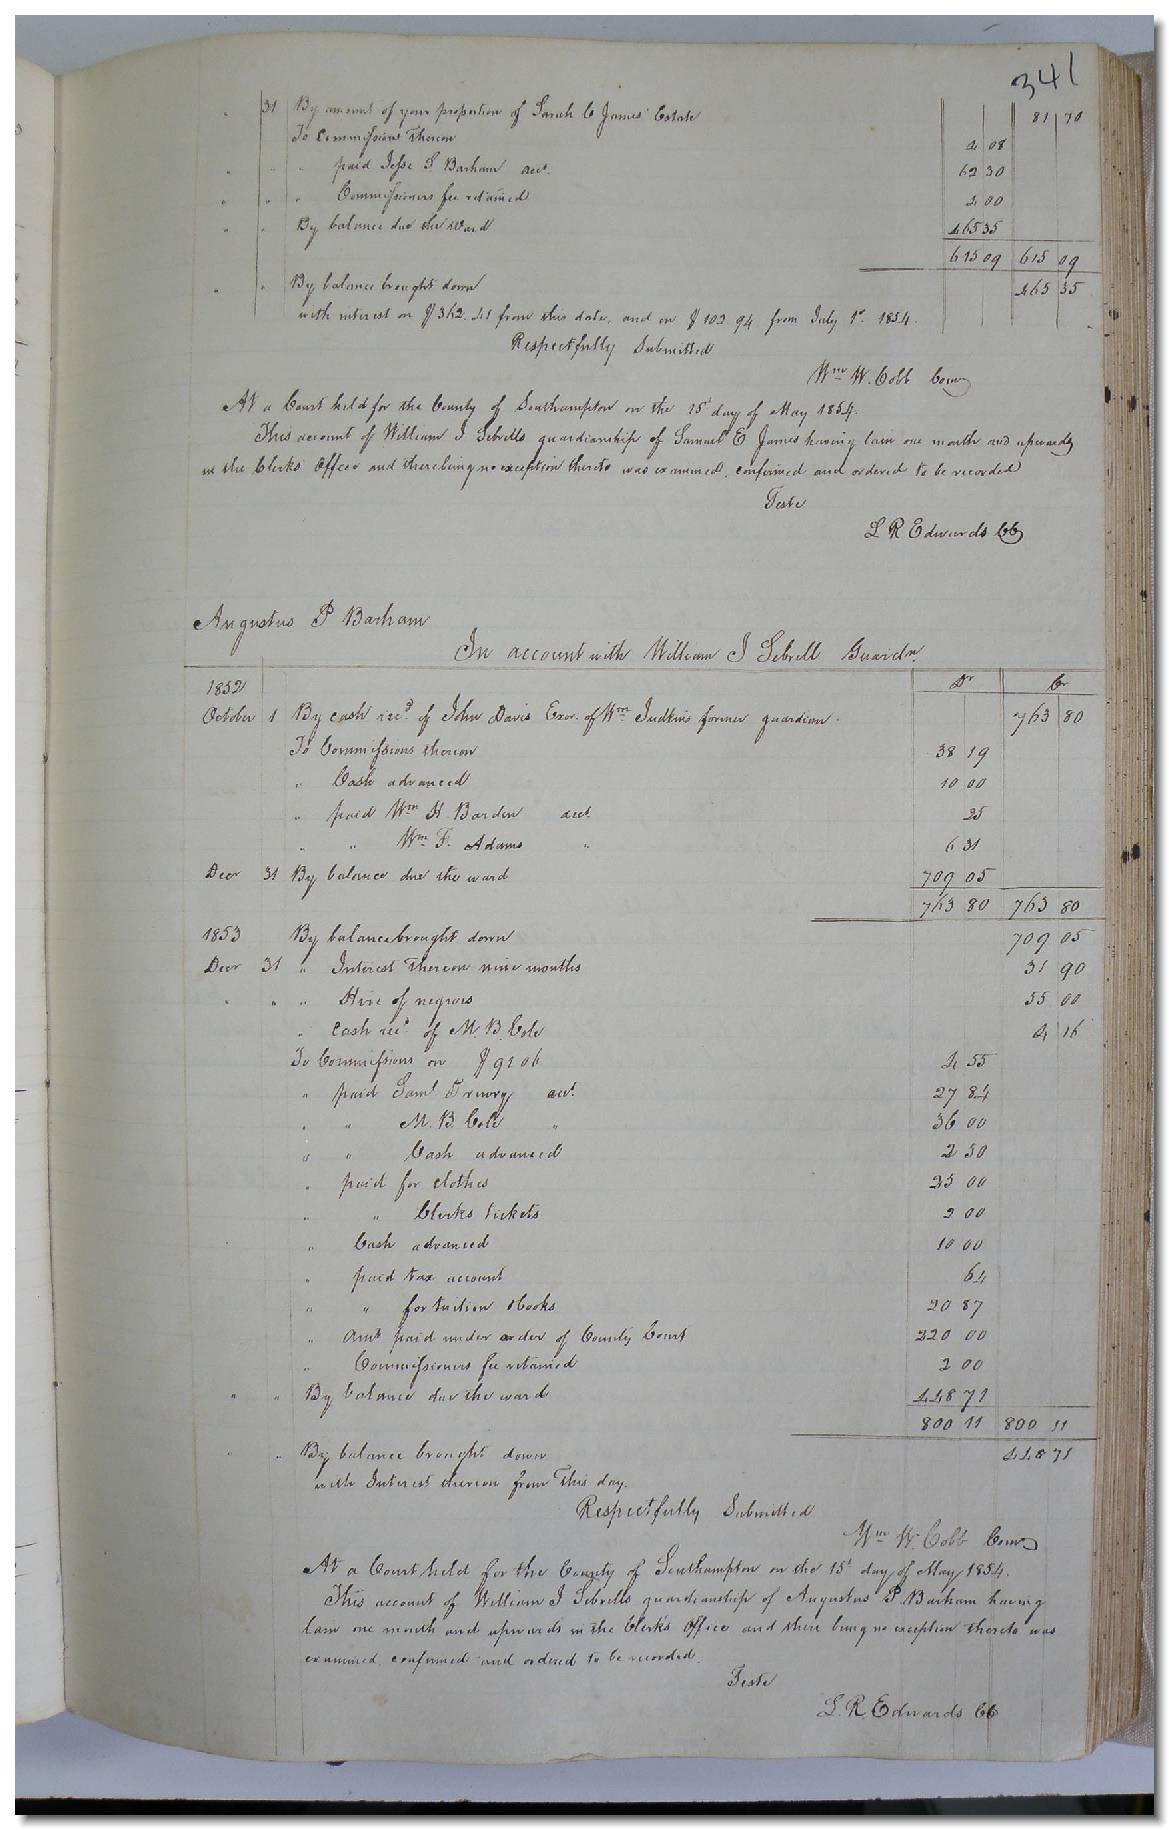 341
" 31 By amount of your proportion of Sarah C James' Estate 81 70
To Commissions thereon 4 08
" " " paid Jesse S. Barham acct. 62 30
" " " Commissioners fee retained 2 00
" " By balance due the ward 465 35
615 09 615 09
" " By balance brought down 465 35
with interest on $362.41 from this date, and on $102 94 from July 1st 1854.
Respectfully Submitted
Wm W. Cobb Comr
At a Court held for the County of Southampton on the 15th day of May 1854.
This account of William J Sebrells guardianship of Samuel E James having lain one month and upwards
in the Clerks Office and there being no exception thereto was examined, confirmed and ordered to be recorded
Teste
L R Edwards CC
Augustus P Barham
In account with William J Sebrell Guardn.
1852 Dr Cr
October 1 By cash recd of John Davis Exor. of Wm Judkins former guardian. 763 80
To Commissions thereon 38 19
" Cash advanced 10 00
" paid Wm H Barden acct 25
" " Wm F. Adams " 6 31
Decr 31 By balance due the ward 709 05
763 80 763 80
1853 By balance brought down 709 05
Decr 31 " Interest thereon nine months 31 90
" " " Hire of negroes 55 00
" Cash recd of M. B. Cole 4 16
To Commissions on $91 06 4 55
" paid Saml Drewry acct 27 84
" " M. B. Cole " 36 00
" " Cash advanced 2 50
" paid for clothes 25 00
" " Clerks tickets 2 00
" Cash advanced 10 00
" paid tax account 64
" " for tuition & books 20 87
" Amt paid under order of County Court 220 00
" Commissioners fee retained 2 00
" " By balance due the ward 448 71
800 11 800 11
" " By balance brought down 448 71
with Interest thereon from this day.
Respectfully Submitted
Wm W. Cobb Comr
At a Court held for the County of Southampton on the 15th day of May 1854.
This account of William J Sebrells guardianship of Augustus P Barham having
lain one month and upwards in the Clerk's Office and there being no exception thereto was
examined, confirmed and ordered to be recorded.
Teste
L. R. Edwards CC